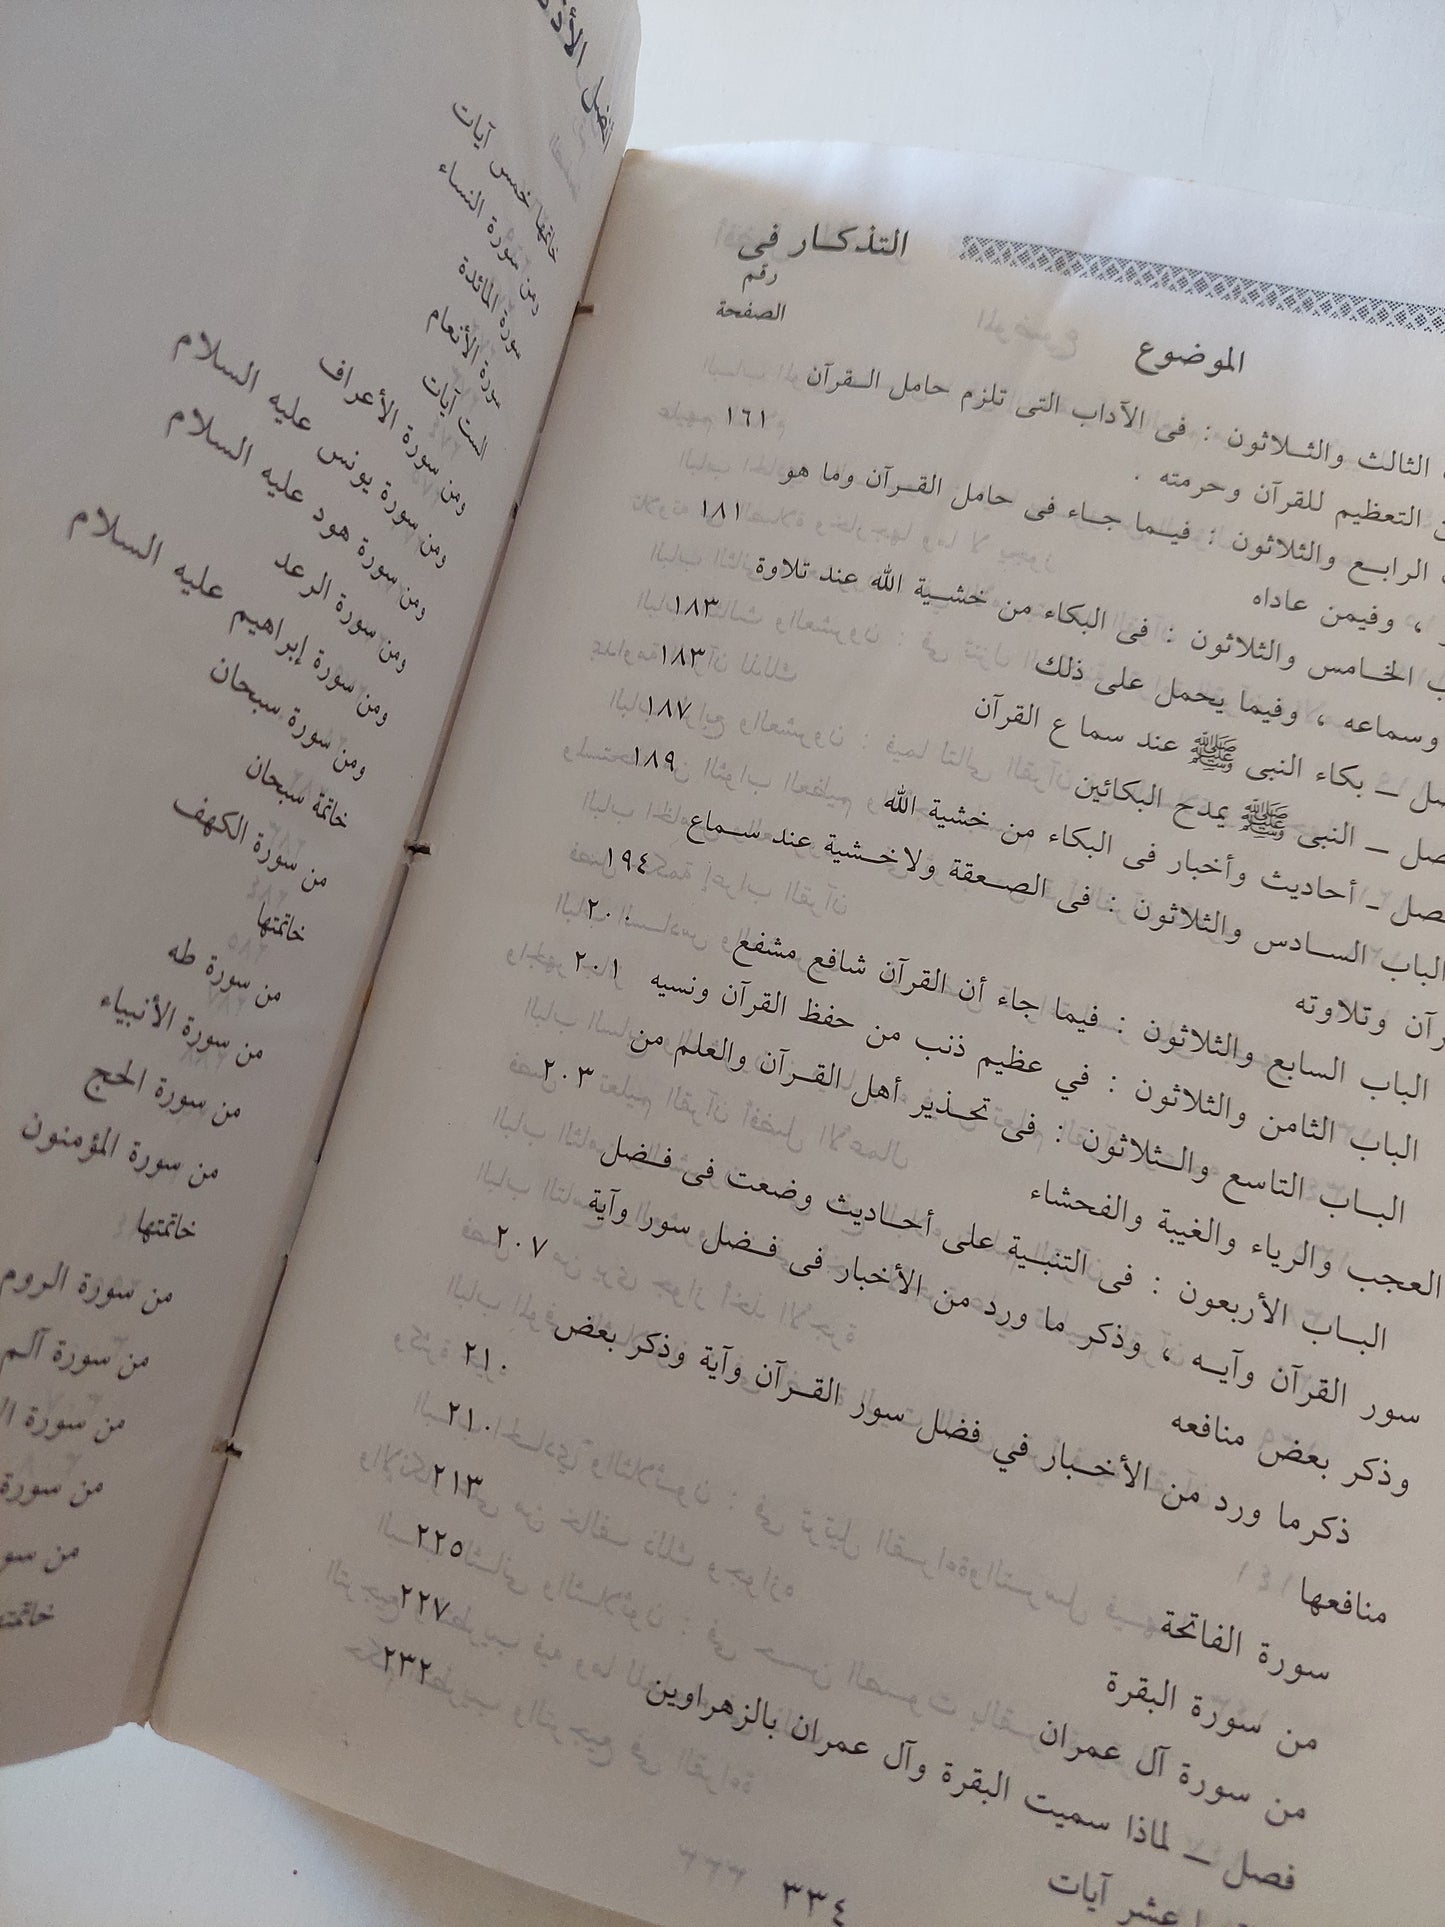 التذكـــار فى
رقم
الصفحة
الموضوع
الثالث والثــلاثون : فى الآداب التى تلزم حامل الــقرآن
التعظيم للقرآن وحرمته . ١٦١
الرابــع والثلاثون : فيــما جــاء فى حامل القــرآن وما هو
، وفيمن عاداه ١٨١
الخــامس والثلاثون : فى البكاء من خشــية الله عند تلاوة
وسماعه ، وفيما يحمل على ذلك ١٨٣
ــ بكاء النبى ﷺ عند سماع القرآن ١٨٣
ــ النبى ﷺ يمدح البكائين ١٨٧
ــ أحاديث وأخبار فى البكاء من خشية الله ١٨٩
الباب الســادس والثلاثون : فى الصــعقة ولاخــشية عند ســماع
وتلاوته ١٩٤
الباب السابع والثلاثون : فيما جاء أن القرآن شافع مشفع ٢٠٠
الباب الثامن والثلاثون : في عظيم ذنب من حفظ القرآن ونسيه ٢٠١
البــاب التاسع والــثلاثون : فى تحــذير أهل القــرآن والعلم من
العجب والرياء والغيبة والفحشاء ٢٠٣
البــاب الأربعون : فى التنبــية على أحــاديث وضعت فى فــضل
سور القرآن وآيــه ، وذكر ما ورد من الأخبار فى فــضل سور وآية
وذكر بعض منافعه ٢٠٧
ذكرما ورد من الأخــبار في فضل سور القــرآن وآية وذكر بعض
منافعها ٢١٠
سورة الفاتحة ٢١٠
من سورة البقرة ٢١٣
من سورة آل عمران ٢٢٥
فصل ــ لماذا سميت البقرة وآل عمران بالزهراوين ٢٢٧
عشر آيات ٢٣٢
٣٣٤
خاتمها خمس آيات
ومن سورة النساء
سورة المائدة
سورة الأنعام
الست آيات
ومن سورة الأعراف
ومن سورة يونس عليه السلام
ومن سورة هود عليه السلام
ومن سورة الرعد
ومن سورة إبراهيم عليه السلام
ومن سورة سبحان
خاتمة سبحان
من سورة الكهف
خاتمتها
من سورة طه
من سورة الأنبياء
من سورة الحج
من سورة المؤمنون
خاتمتها
من سورة الروم
من سورة آلم
من سورة
من سورة
من